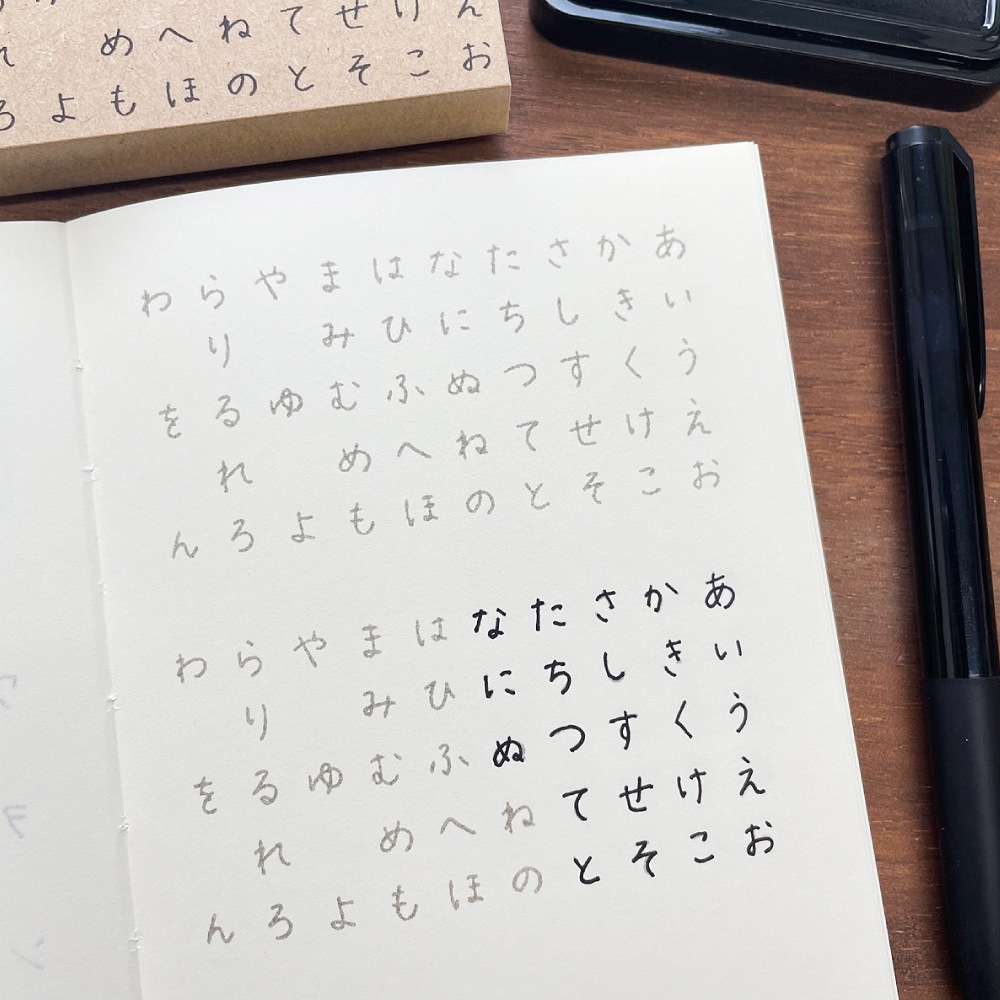 えお
けこ
せそ
てと
ねの
へほ
めも
よ
れろ
あいうえお
かきくけこ
さしすせそ
たちつてと
なにぬねの
はひふへほ
まみむめも
やゆよ
らりるれろ
わをん
あいうえお
かきくけこ
さしすせそ
たちつてと
なにぬねの
はひふへほ
まみむめも
やゆよ
らりるれろ
わをん